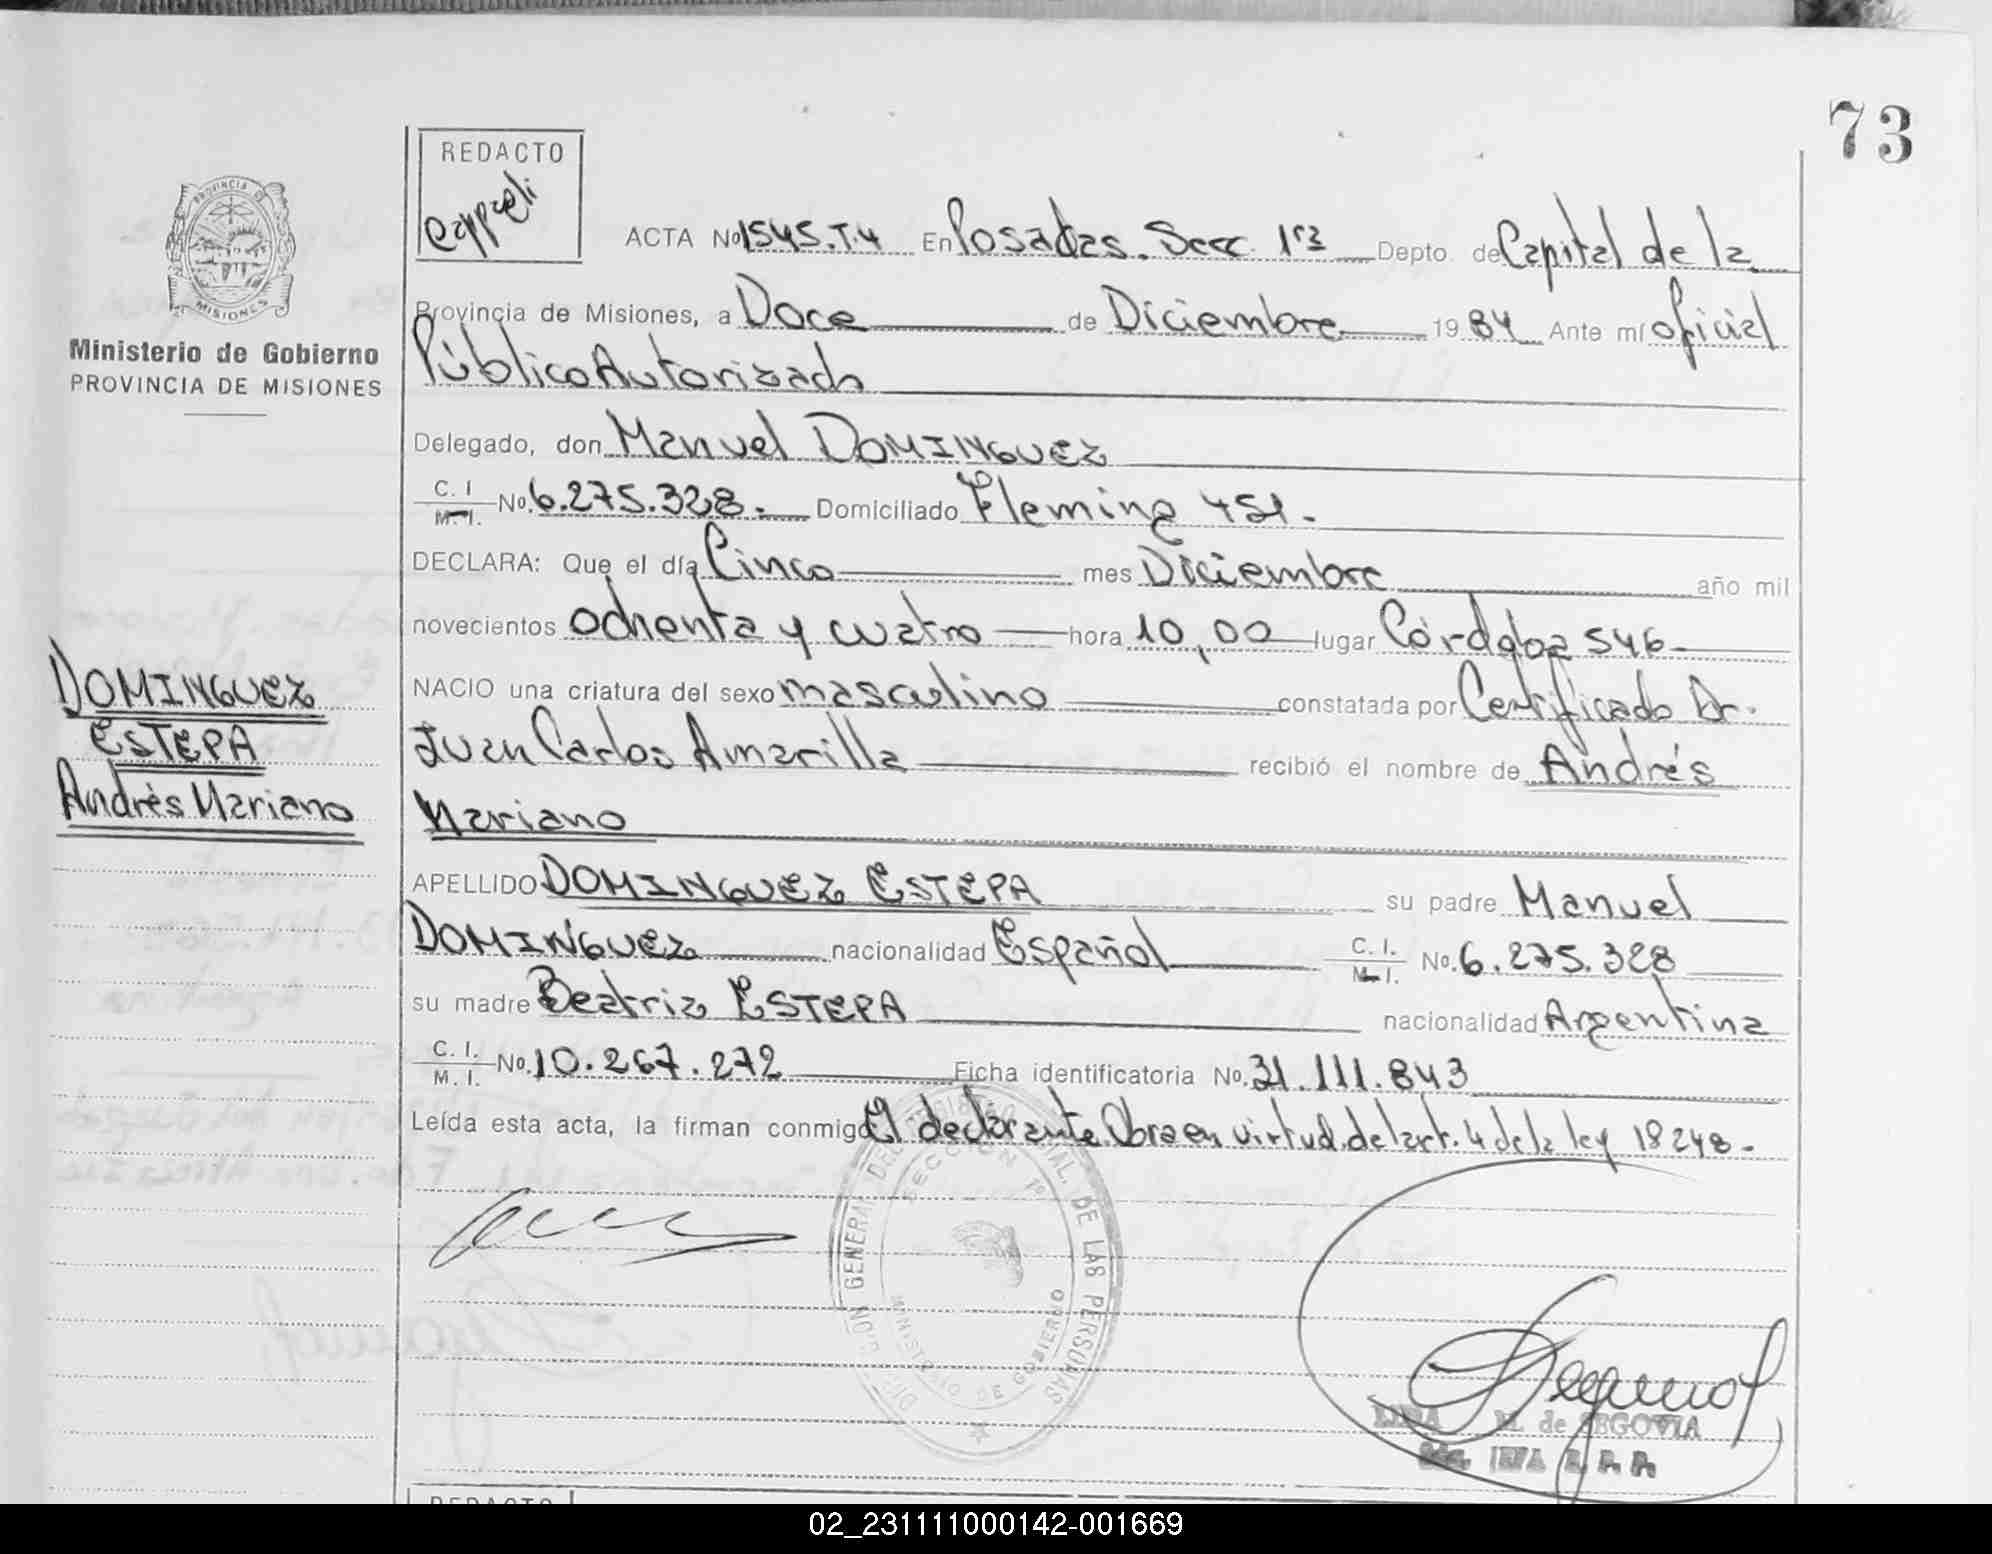 73
REDACTO
cappeli
PROVINCIA DE
MISIONES
Ministerio de Gobierno
PROVINCIA DE MISIONES
ACTA Nº 1545.T.4 En Posadas. Secc. 1ra Depto. de Capital de la
Provincia de Misiones, a Doce de Diciembre 1984 Ante mí oficial
Público Autorizado
Delegado, don Manuel DOMINGUEZ
C. I. M. I. No. 6.275.328. Domiciliado Fleming 451.
DECLARA: Que el día Cinco mes Diciembre año mil
novecientos ochenta y cuatro hora 10,00 lugar Córdoba 546
NACIO una criatura del sexo masculino constatada por Certificado Dr.
Juan Carlos Amarilla recibió el nombre de Andrés
Mariano
DOMINGUEZ
ESTEPA
Andrés Mariano
APELLIDO DOMINGUEZ ESTEPA su padre Manuel
DOMINGUEZ nacionalidad Español C. I. M. I. No. 6.275.328
su madre Beatriz ESTEPA nacionalidad Argentina
C. I. M. I. No. 10.267.272 Ficha identificatoria No. 31.111.843
Leída esta acta, la firman conmigo El declarante Obra en virtud del art. 4 de la ley 18248.
DIRECCION GENERAL DEL REGISTRO PROVINCIAL DE LAS PERSONAS
SECCION 1º
MINISTERIO DE GOBIERNO
M. de SEGOVIA
REDACTO
02_231111000142-001669